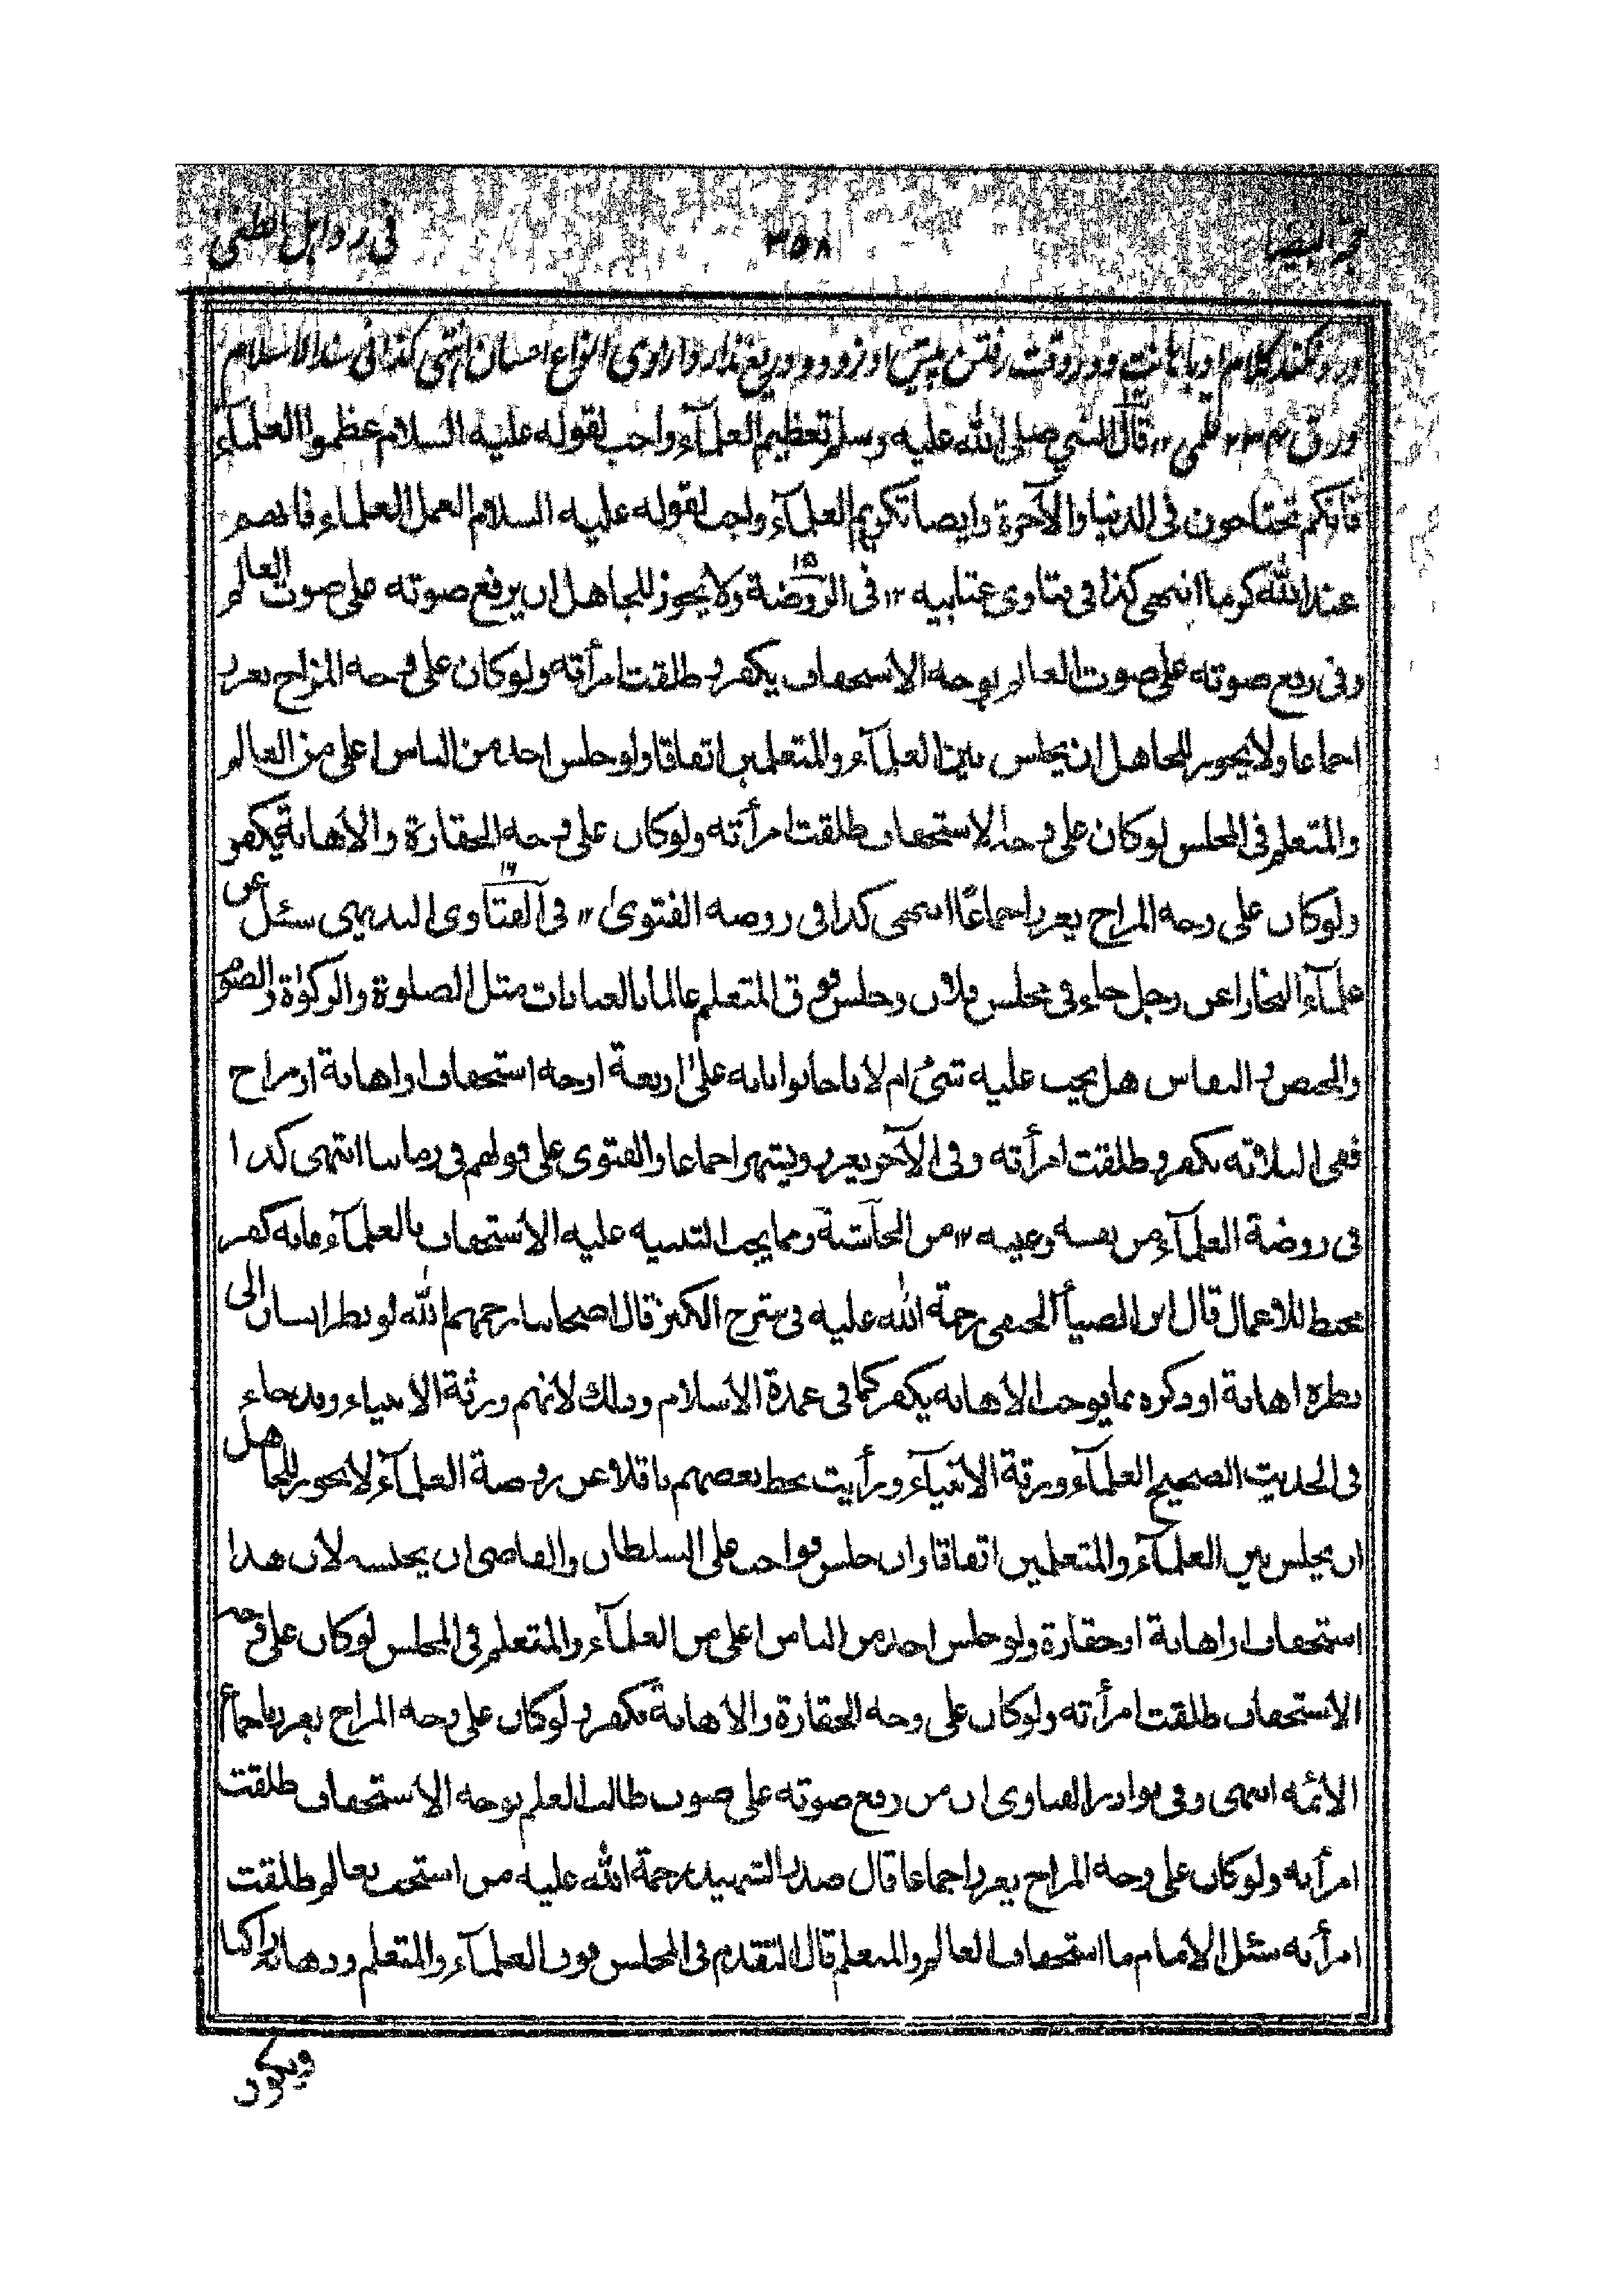 ٣٥٨
ورد نکند کلام او با هانت ودر وقت رفتن پیش او زود دود ریغ ندارد از وی انواع احسان انتهی کذا فی
ورق قلمی ١٢ قال النبي صلى الله عليه وسلم تعظيم العلمآء واجب لقوله عليه السلام عظموا العلمآء
فانكم تحتاجون فى الدنيا والآخرة وايضا تكريم العلمآء واجب لقوله عليه السلام العلماء فانهم
عند الله كرما انتهى كذا فى فتاوى عتابيه ١٢ فى الروضة ولا يجوز للجاهل ان يرفع صوته على صوت العالم
وفى رفع صوته على صوت العالم بوجه الاستخفاف يكفر و طلقت امرأته ولو كان على وجه المزاح يعزر
اجماعا ولا يجوز للجاهل ان يجلس بين العلمآء والمتعلمين اتفاقا ولو جلس احد من الناس اعلى من العالم
والمتعلم فى المجلس لو كان على وجه الاستخفاف طلقت امرأته ولو كان على وجه الحقارة والاهانة يكفر
ولو كان على وجه المزاح يعزر اجماعًا انتهى كذا فى روضه الفتوى ١٢ فى الفتاوى سئل عن
علمآء البخارا عن رجل جاء فى مجلس فلان وجلس فوق المتعلم عالما بالعبادات مثل الصلوة والزكوة والصوم
والحيض و النفاس هل يجب عليه شئ ام لا فاجابوا بانه على اربعة اوجه استخفاف او اهانة او مزاح
ففى الثلاثه يكفر و طلقت امرأته وفى الآخر يعزر ويشهر اجماعا والفتوى على قولهم فى زماننا انتهى كذا
فى روضة العلمآء من نفسه وعيبه ١٢ من الحآشية ومما يجب التنبيه عليه الاستخفاف بالعلمآء فانه كفر
محبط للاعمال قال ابن الضيآ الحنفى رحمة الله عليه فى شرح الكنز قال اصحابنا رحمهم الله لو نظر انسان الى
نظرة اهانة او ذكره بما يوجب الاهانه يكفر كما فى عمدة الاسلام وذلك لانهم ورثة الانبياء وقد جاء
فى الحديث الصحيح العلمآء ورثة الانبيآء ورأيت بخط بعضهم ناقلا عن روضة العلمآء لا يجوز للجاهل
ان يجلس بين العلمآء والمتعلمين اتفاقا وان جلس فواجب على السلطان والقاضى ان يجلسه لان هذا
استخفاف او اهانة او حقارة ولو جلس احد من الناس اعلى من العلمآء والمتعلم فى المجلس لو كان على وجه
الاستخفاف طلقت امرأته ولو كان على وجه الحقارة والاهانة يكفر و لو كان على وجه المزاح يعزر باجماع
الائمه انتهى وفى نوادر الفتاوى ان من رفع صوته على صوت طالب العلم بوجه الاستخفاف طلقت
امرأته ولو كان على وجه المزاح يعزر اجماعا قال صدر الشهيد رحمة الله عليه من استخف بعالم طلقت
امرأته سئل الامام ما استخفاف العالم والمتعلم قال التقدم فى المجلس فوق العلمآء والمتعلم وذهابه راكبا